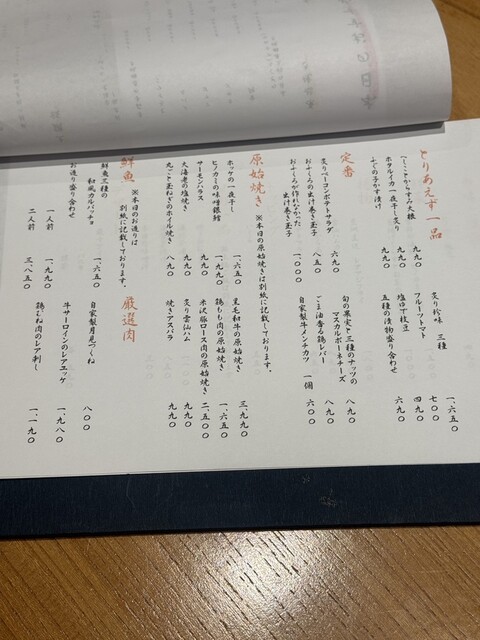 とりあえず一品
へしことからすみ大根 九九〇
ホタルイカ一夜干し炙り 九九〇
ふぐの子かす漬け 九九〇
炙り珍味 三種 一、六五〇
フルーツトマト 七〇〇
塩ゆで枝豆 四九〇
五種の漬物盛り合わせ 六九〇
定番
炙りベーコンポテトサラダ 六九〇
おふくろの出汁巻き玉子 八五〇
おふくろが作れなかった
出汁巻き玉子 一、〇〇〇
旬の果実と三種のナッツの
マスカルポーネチーズ 八九〇
ごま油香る鶏レバー 八九〇
自家製牛メンチカツ 一個 六〇〇
原始焼き ※本日の原始焼きは別紙に記載しております。
ホッケの一夜干し 一、六五〇
ヒノカミの味噌銀鱈 一、九九〇
サーモンハラス 九九〇
大海老の塩焼き 九九〇
丸ごと玉ねぎのホイル焼き 八九〇
黒毛和牛の原始焼き 三、九九〇
鶏もも肉の原始焼き 一、六五〇
米沢豚ロース肉の原始焼き 二、五〇〇
炙り雲仙ハム 九九〇
焼きアスパラ 九九〇
鮮魚 ※本日のお造りは
別紙に記載しております。
鮮魚三種の
和風カルパッチョ 一、六五〇
お造り盛り合わせ
一人前 一、九九〇
二人前 三、八五〇
厳選肉
自家製月見つくね 八〇〇
牛サーロインのレアユッケ 一、九八〇
鶏むね肉のレア刺し 一、一九〇